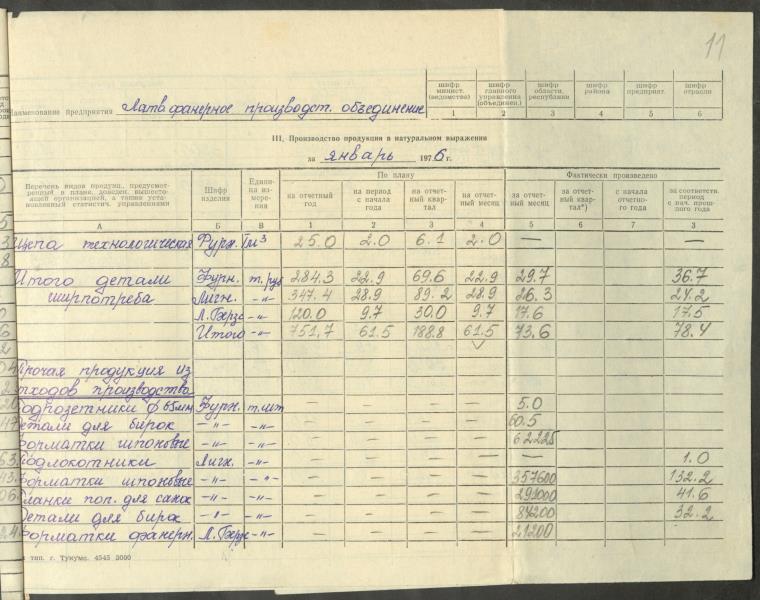 11
шифр минист. (ведомства) шифр главного управления (объединен.) шифр области, республики шифр района шифр предприят. шифр отрасли
1 2 3 4 5 6
Наименование предприятия Латв. фанерное производст. объединение
III. Производство продукции в натуральном выражении
за январь 1976 г.
Перечень видов продукц., предусмотренный в плане, доведен. вышестоящей организацией, а также установленный статистич. управлениями Шифр изделия Единица измерения По плану Фактически произведено
на отчетный год на период с начала года на отчетный квартал на отчетный месяц за отчетный месяц за отчетный квартал*) с начала отчетного года за соответств. период с нач. прошлого года
А Б В 1 2 3 4 5 6 7 8
Щепа технологическая Фурн. Тм³ 25.0 2.0 6.1 2.0 — —
Итого детали Фурн. т.руб 284.3 22.9 69.6 22.9 29.7 36.7
ширпотреба Лигн. -"- 347.4 28.9 89.2 28.9 26.3 24.2
Л. Берзс -"- 120.0 9.7 30.0 9.7 17.6 17.5
Итого -"- 751,7 61.5 188.8 61.5 73.6 78.4
Прочая продукция из
отходов производства
Подрозетники ф 65мм Фурн. т.шт — — — — 5.0
Детали для бирок -"- -"- — — — — 60.5
Форматки шпоновые -"- -"- — — — — 62225
Подлокотники Лигн. -"- — — — — — 1.0
Форматки шпоновые -"- -"- — — — — 357600 132.2
Планки поп. для санок -"- -"- — — — — 291000 41.6
Детали для бирок -"- -"- — — — — 87200 32.2
Форматки фанерн. Л. Берзс -"- — — — — 21200
тип. г. Тукумс. 4545 3000